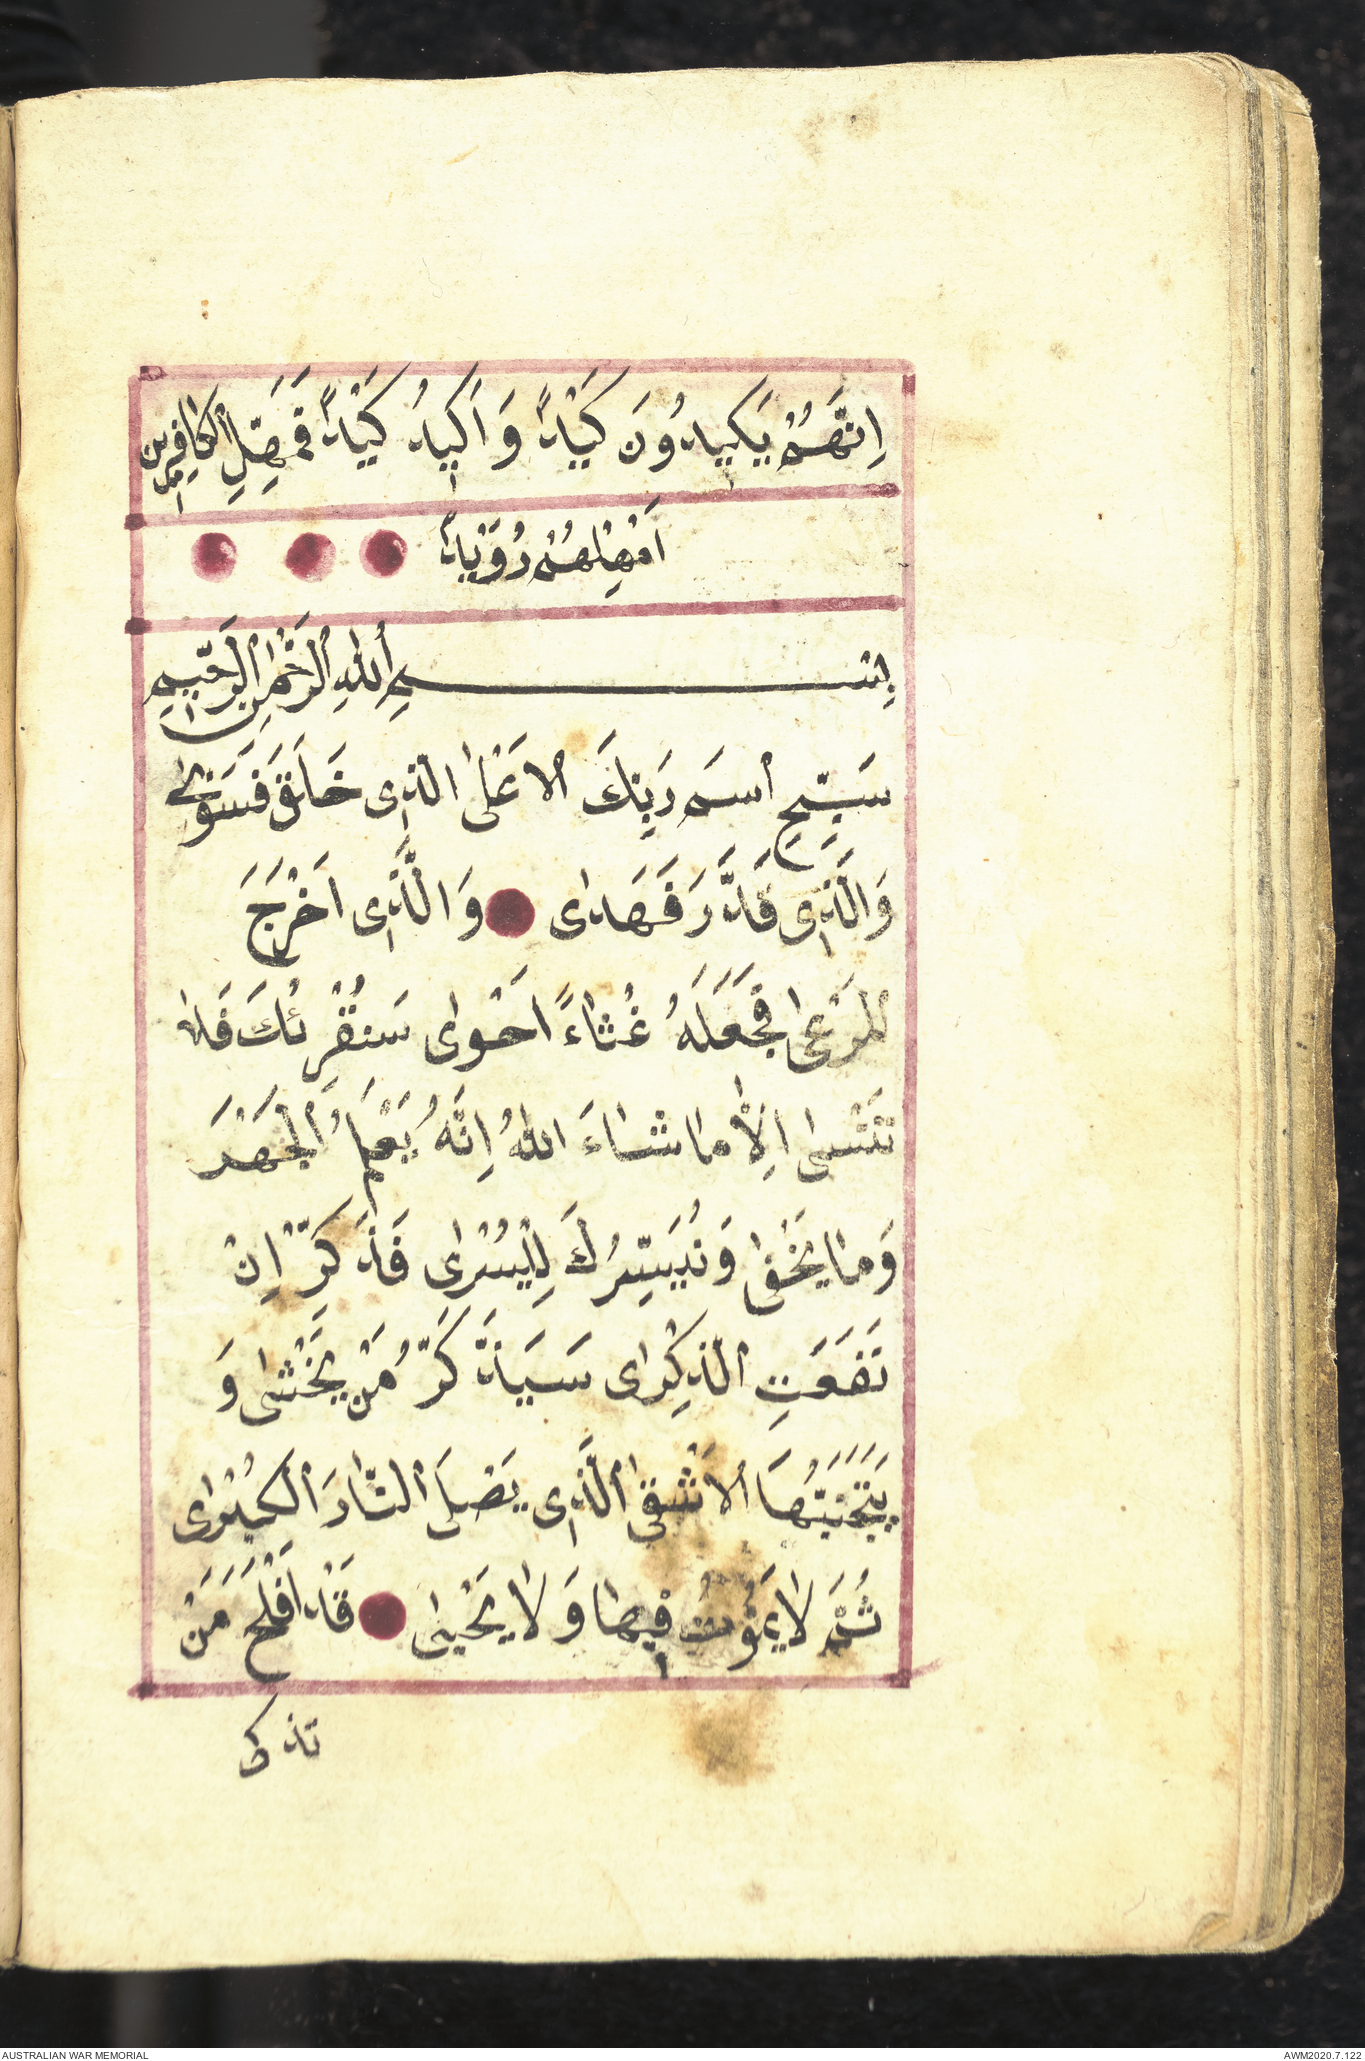 اِنَّهُمْ يَكيدُونَ كَيْداً وَ اَكيدُ كَيْداً فَمَهِّلِ الْكافِرين
اَمْهِلْهُمْ رُوَيْداً
بِسْمِ اللهِ الرَّحْمٰنِ الرَّحيمِ
سَبِّحِ اسمَ رَبِّكَ الاَعْلى الَّذى خَلَقَ فَسَوّٰى
وَالَّذى قَدَّرَ فَهَدٰى وَالَّذى اَخْرَجَ
المَرْعٰى فَجَعَلَهُ غُثاءً اَحْوٰى سَنُقْرِئُكَ فَلا
تَنْسٰى اِلاّ ما شاءَ اللهُ اِنَّهُ يَعْلَمُ الْجَهْرَ
وَما يَخْفٰى وَنُيَسِّرُكَ لِلْيُسْرٰى فَذَكِّرْ اِنْ
نَفَعَتِ الذِكْرٰى سَيَذَّكَّرُ مَنْ يَخْشٰى وَ
يَتَجَنَّبُهَا الاَشْقٰى الَّذى يَصْلَى النّارَ الْكُبْرٰى
ثُمَّ لا يَمُوتُ فيها وَلا يَحْيىٰ قَدْ اَفْلَحَ مَنْ
تذكى
AUSTRALIAN WAR MEMORIAL
AWM2020.7.122